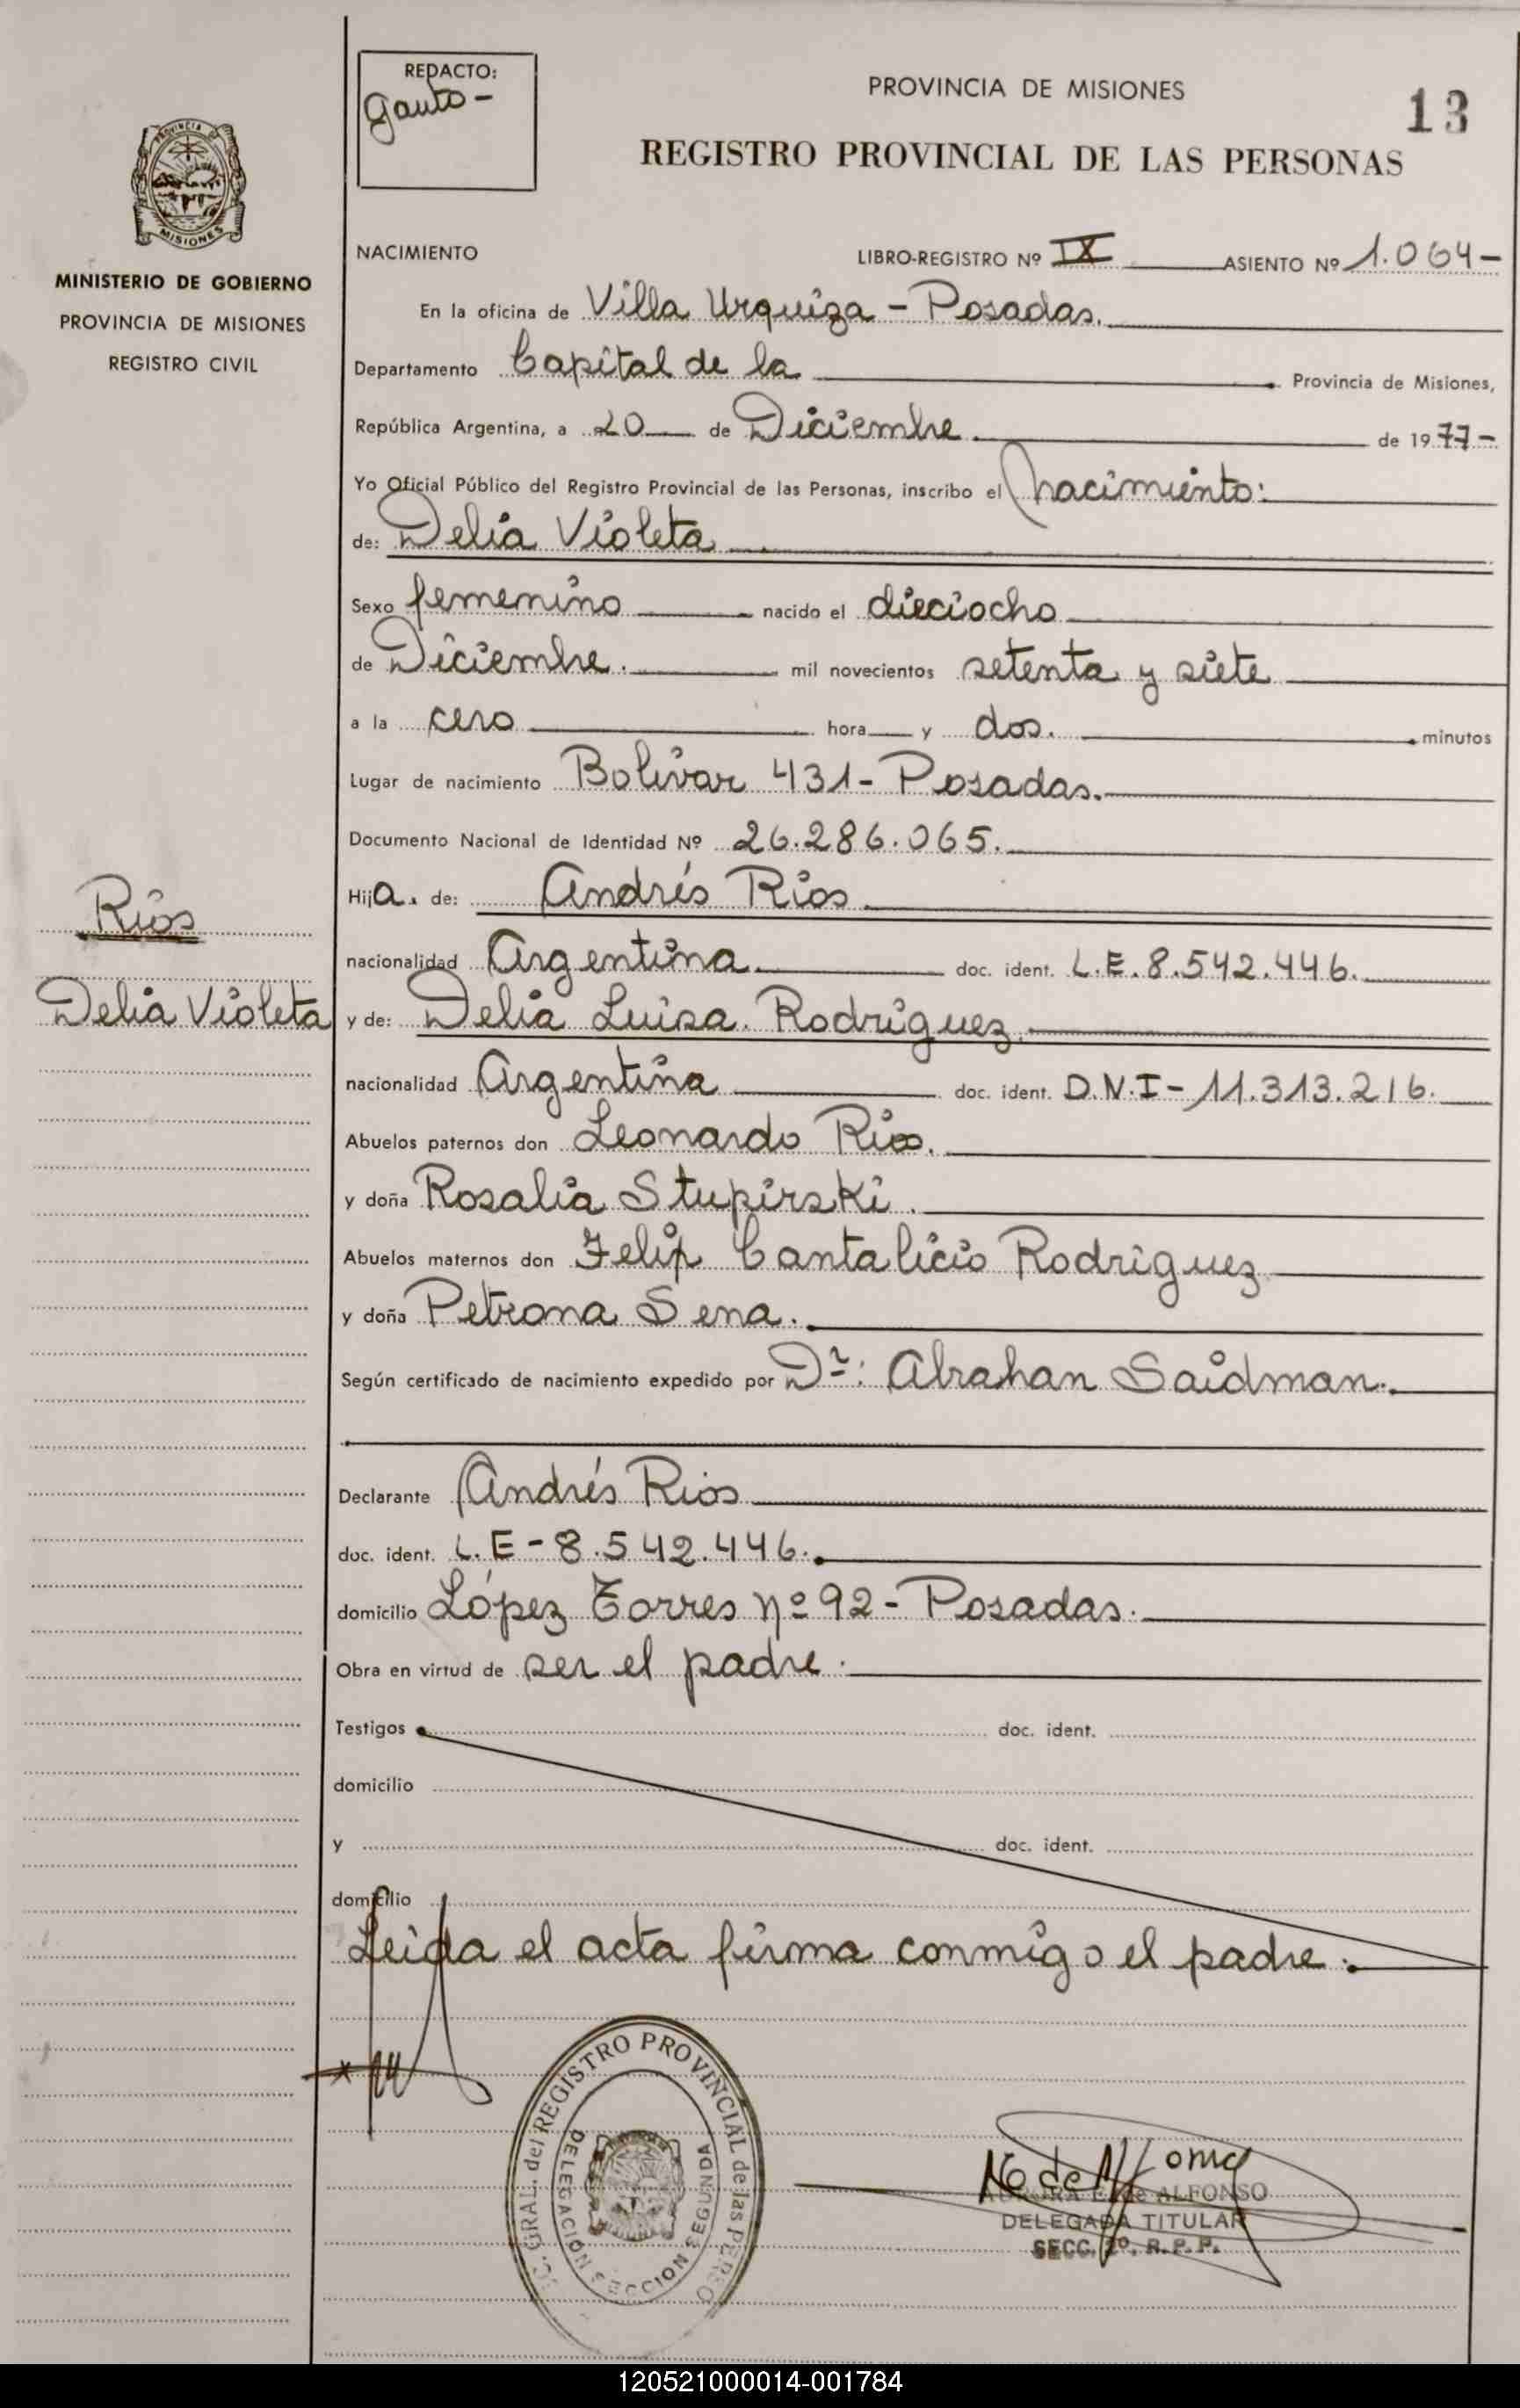 REDACTO:
Gauto -
PROVINCIA DE MISIONES
13
REGISTRO PROVINCIAL DE LAS PERSONAS
PROVINCIA DE
MISIONES
MINISTERIO DE GOBIERNO
PROVINCIA DE MISIONES
REGISTRO CIVIL
NACIMIENTO LIBRO-REGISTRO Nº IX ASIENTO Nº 1.064-
En la oficina de Villa Urquiza - Posadas.
Departamento Capital de la Provincia de Misiones,
República Argentina, a 20 de Diciembre de 1977-
Yo Oficial Público del Registro Provincial de las Personas, inscribo el nacimiento:
de: Delia Violeta
Sexo femenino nacido el dieciocho
de Diciembre. mil novecientos setenta y siete
a la cero hora y dos. minutos
Lugar de nacimiento Bolivar 431- Posadas.
Documento Nacional de Identidad Nº 26.286.065.
Hija. de: Andrés Rios
nacionalidad Argentina. doc. ident. L.E. 8.542.446.
y de: Delia Luisa. Rodriguez.
nacionalidad Argentina doc. ident. D.N.I- 11.313.216.
Abuelos paternos don Leonardo Rios.
y doña Rosalia Stupirski.
Abuelos maternos don Felip Cantalicio Rodriguez
y doña Petrona Sena.
Según certificado de nacimiento expedido por Dr: Abrahan Saidman.
Declarante Andrés Rios
doc. ident. L.E - 8.542.446.
domicilio López Torres nº 92 - Posadas.
Obra en virtud de ser el padre.
Testigos doc. ident.
domicilio
y doc. ident.
domicilio
Leida el acta firma conmigo el padre.
Rios
Delia Violeta
GRAL. del REGISTRO PROVINCIAL de las PERSO
DELEGACION SECCION SEGUNDA
AURORA E. de ALFONSO
DELEGADA TITULAR
SECC. 2º. R. P. P.
120521000014-001784